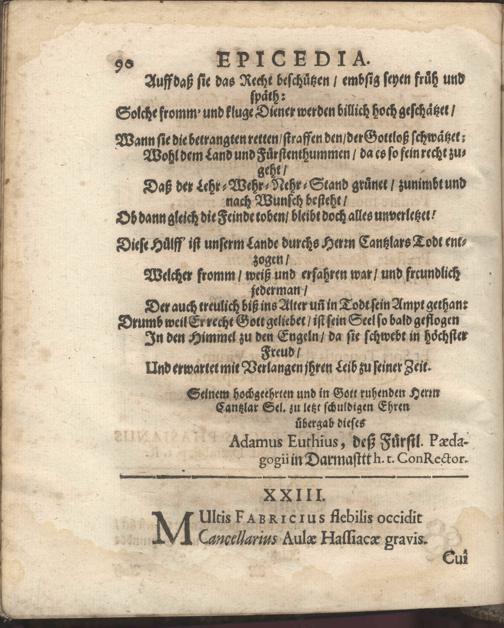 90 EPICEDIA.
Auff daß sie das Recht beschützen / embsig seyen früh und
späth:
Solche fromm' und kluge Diener werden billich hoch geschätzet /
Wann sie die betrangten retten / straffen den / der Gottloß schwätzet;
Wohl dem Land und Fürstenthummen / da es so fein recht zu-
geht /
Daß der Lehr-Wehr-Nehr-Stand grünet / zunimbt und
nach Wunsch besteht /
Ob dann gleich die Feinde toben / bleibt doch alles unverletzet!
Diese Hülff' ist unserm Lande durchs Herrn Cantzlars Todt ent-
zogen /
Welcher fromm / weiß und erfahren war / und freundlich
jederman /
Der auch treulich biß ins Alter uñ in Todt sein Ampt gethan:
Drumb weil Er recht Gott geliebet / ist sein Seel so bald geflogen
In den Himmel zu den Engeln / da sie schwebt in höchster
Freud /
Und erwartet mit Verlangen jhren Leib zu seiner Zeit.
Seinem hochgeehrten und in Gott ruhenden Herrn
Cantzlar Sel. zu letzt schuldigen Ehren
übergab dieses
Adamus Euthius, deß Fürstl. Pæda-
gogii in Darmasttt h. t. ConRector.
XXIII.
MUltis FABRICIUS flebilis occidit
Cancellarius Aulæ Hassiacæ gravis.
Cui